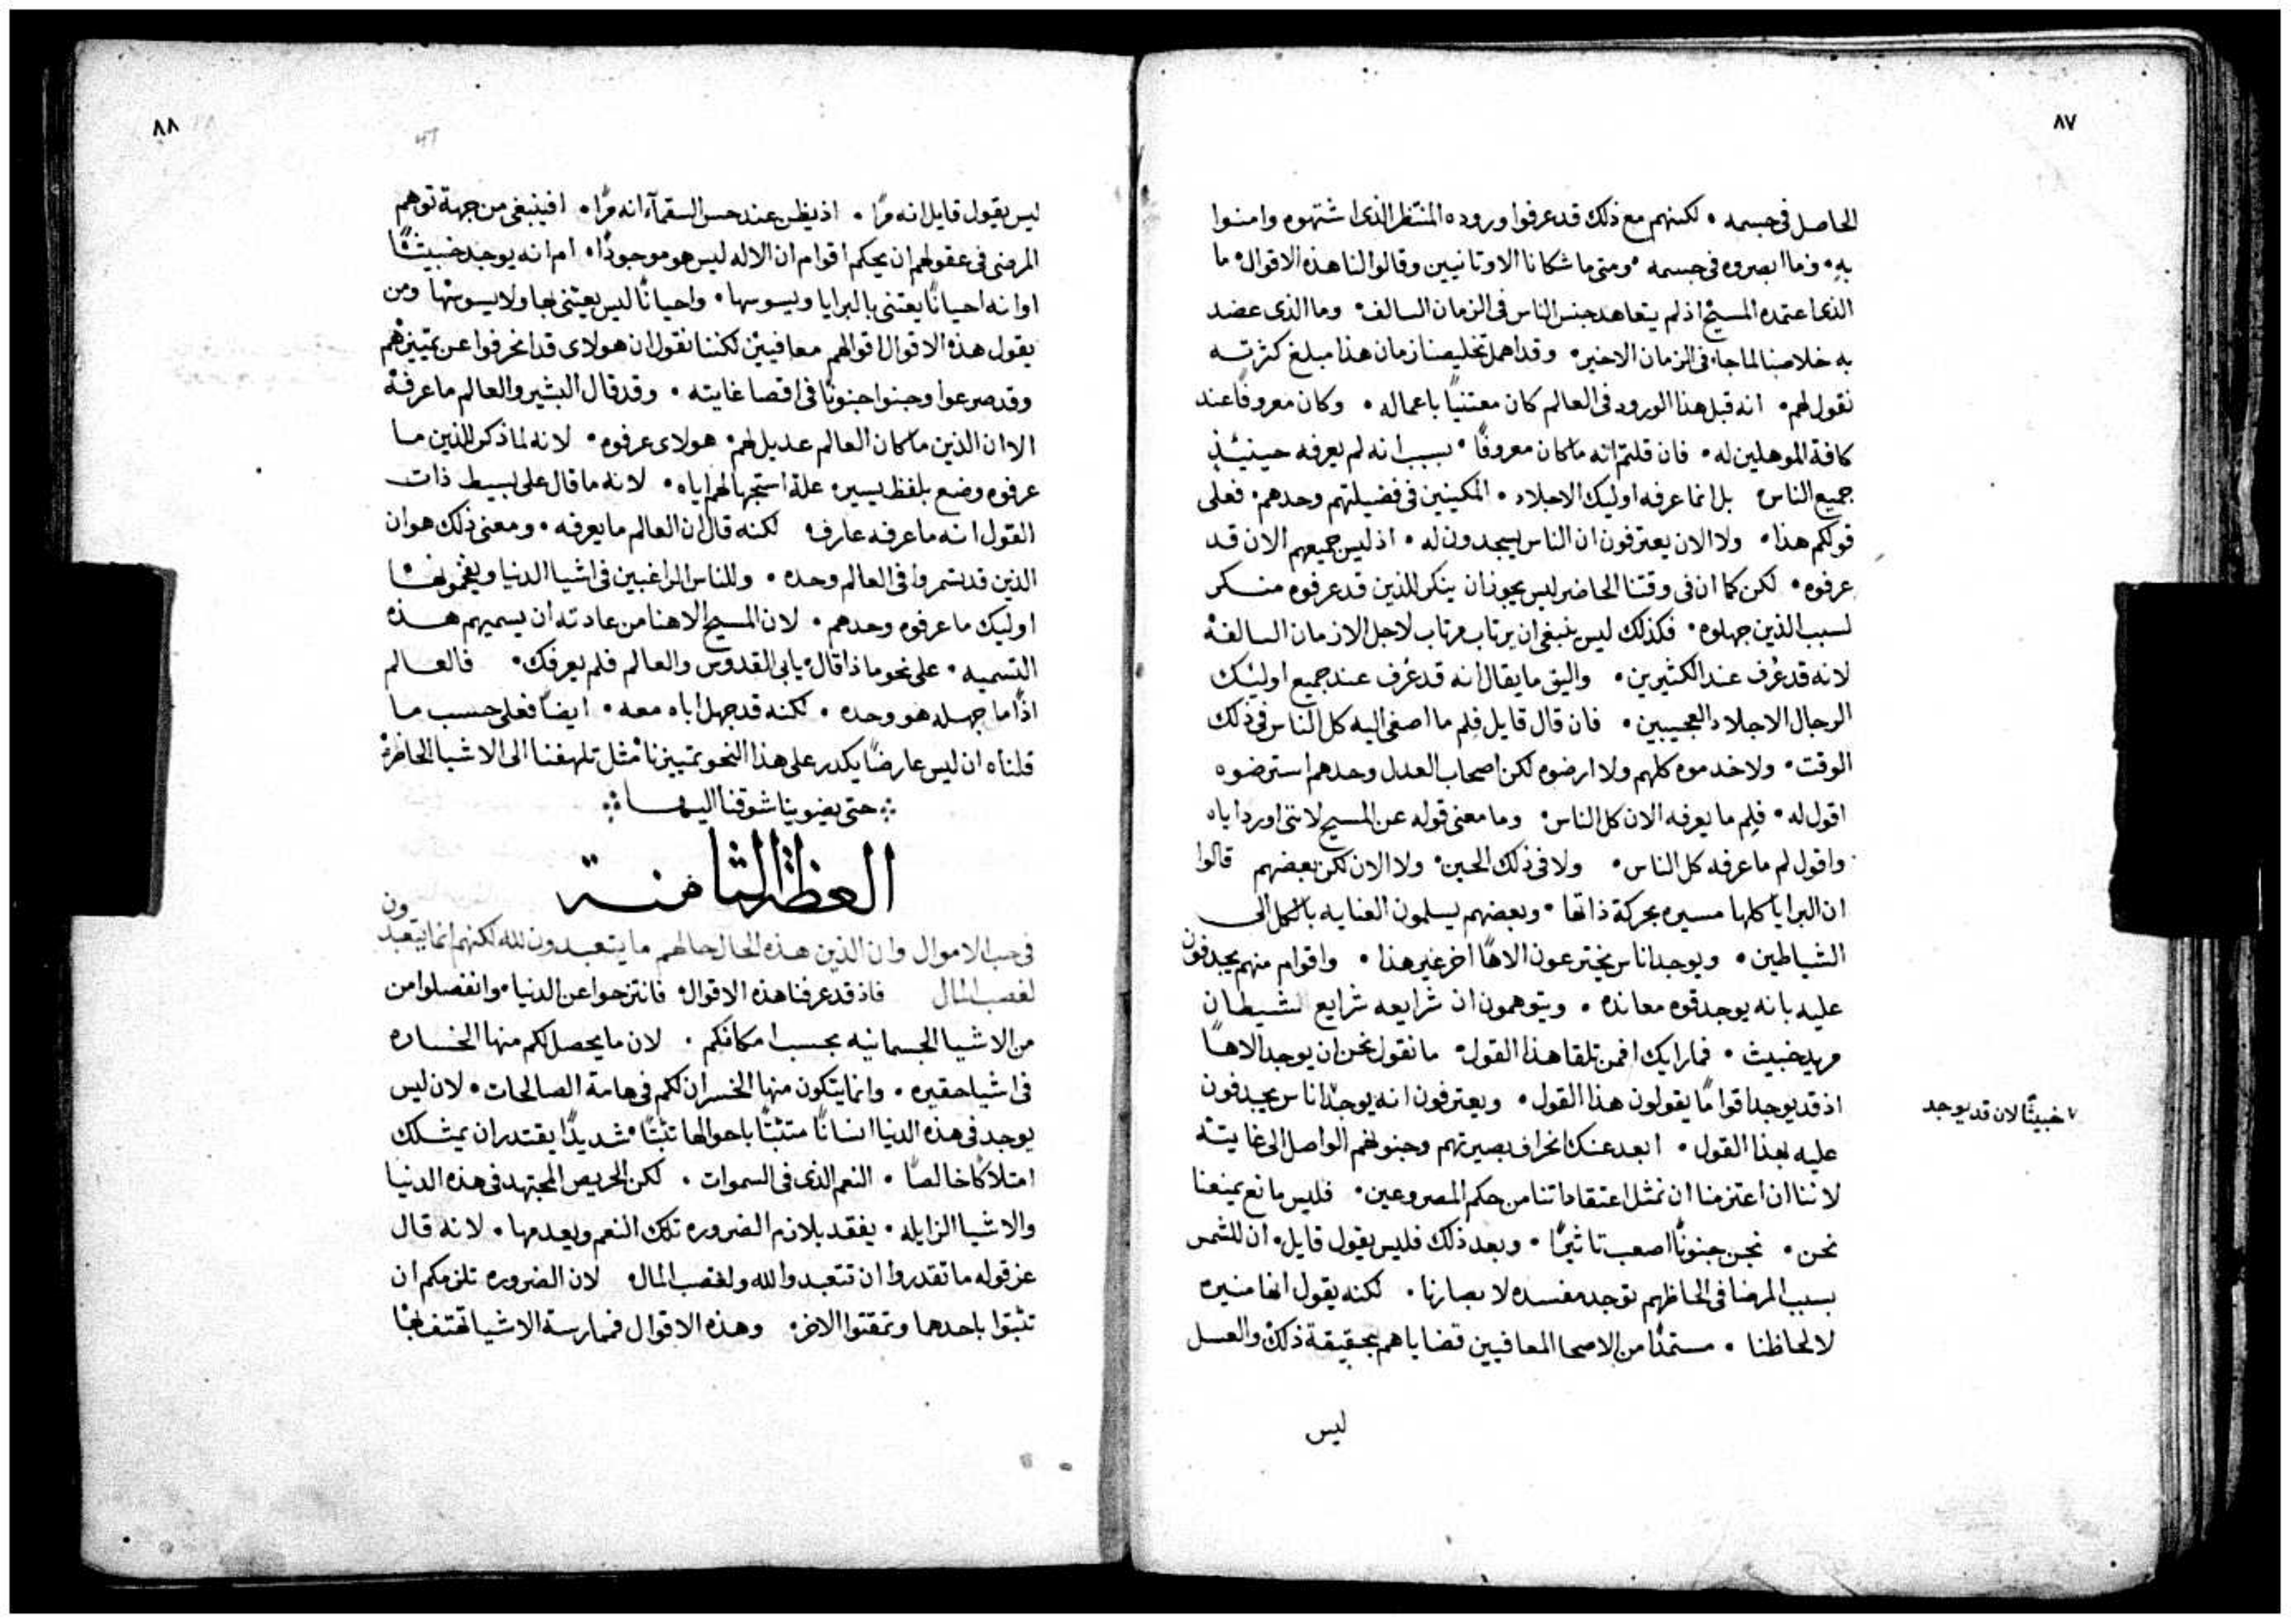 ٨٧
الحاصل في جسمه • لكنهم مع ذلك قد عرفوا وروده المنتظر الذي اشتهوه وامنوا
به • وما ابصروه في جسمه • ومتى ما شكانا الاوتانيين وقالوا لنا هذه الاقوال • ما
الذي اعتمده المسيح اذ لم يتعاهد جنس الناس في الزمان السالف • وما الذي عضد
به خلاصنا لما جاء في الزمان الاخير • وقد اهمل تخليصنا زمان هذا مبلغ كثرته
نقول لهم • انه قبل هذا الورود في العالم كان معتنيًا باعماله • وكان معروفًا عند
كافة الموهلين له • فان قلتم انه ما كان معروفًا • بسبب انه لم يعرفه حينيئذٍ
جميع الناس بل انما عرفه اوليك الاجلاد • المكينين في فضيلتهم وحدهم • فعلى
قولكم هذا • ولا الان يعترفون ان الناس يسجدون له • اذ ليس جميعهم الان قد
عرفوه • لكن كما ان في وقتنا الحاضر ليس يجوز ان ينكر للذين قد عرفوه منكر
لسبب الذين جهلوه • فكذلك ليس ينبغي ان يرتاب مرتاب لاجل الازمان السالفة
لانه قد عُرف عند الكثيرين • واليق ما يقال انه قد عُرف عند جميع اوليك
الرجال الاجلاد العجيبين • فان قال قايل فلم ما اصغى اليه كل الناس في ذلك
الوقت • ولا خدموه كلهم ولا ارضوه لكن اصحاب العدل وحدهم استرضوه
اقول له • فلِم ما يعرفه الان كل الناس • وما معنى قوله عن المسيح لانني اورد اباه
واقول لم ما عرفه كل الناس • ولا في ذلك الحين • ولا الان لكن بعضهم قالوا
ان البرايا كلها مسيره بحركة ذاتها • وبعضهم يسلمون العنايه بالكمل الى
الشياطين • ويوجد اناس يخترعون الاهًا اخر غير هذا • واقوام منهم يجدفون
عليه بانه يوجد قوه معانده • ويتوهمون ان شرايعه شرايع لشيطان
مريد خبيث • فما رايك افمن تلقا هذا القول • ما نقول نحن ان يوجد الاهًا
اذ قد يوجد اقوامًا يقولون هذا القول • ويعترفون انه يوجد اناس يجدفون
٧ خبيثًا لان قد يوجد
عليه بهذا القول • ابعد عنك انحراف بصيرتهم وجنونهم الواصل الى غايته
لاننا ان اعتزمنا ان نمثل اعتقاداتنا من حكم المصروعين • فليس مانع يمنعنا
نحن • نجن جنونًا اصعب تاثيرًا • وبعد ذلك فليس يقول قايل • ان للشمس
بسبب المرضا في الحاظهم توجد مفسده لابصارنا • لكنه يقول انها منيره
لالحاظنا • مستمدًا من الاصحا المعافيين قضاياهم بحقيقة ذلك والعسل
ليس
٨٨
ليس يقول قايل انه مرًا • اذ يظن عند حس السقمآء انه مرًا • افينبغي من جهة توهم
المرضى في عقولهم ان يحكم اقوام ان الاله ليس هو موجودًا • ام انه يوجد خبيثًا
او انه احيانًا يعتني بالبرايا ويسوسها • واحيانًا ليس يعتني بها ولا يسوسها ومن
يقول هذه الاقوال اقوالهم معافيين لكننا نقول ان هولاى قد انحرفوا عن تمييزهم
وقد صرعوا وجنوا جنونًا في اقصا غايته • وقد قال البشير والعالم ما عرفه
الا ان الذين ما كان العالم عديل لهم • هولاى عرفوه • لانه لما ذكر الذين ما
عرفوه وضع بلفظ يسير • علة استجهالهم اياه • لانه ما قال على بسيط ذات
القول انه ما عرفه عارف • لكنه قال ان العالم ما يعرفه • ومعنى ذلك هو ان
الذين قد تسمروا في العالم وحده • وللناس الراغبين في اشيا الدنيا ويفخمونها
اوليك ما عرفوه وحدهم • لان المسيح الاهنا من عادته ان يسميهم هذه
التسميه • على نحو ماذا قال • يا ابي القدوس والعالم فلم يعرفك • فالعالم
اذًا ما جهله هو وحده • لكنه قد جهل اباه معه • ايضًا فعلى حسب ما
قلناه ان ليس عارضًا يكدر على هذا النحو تمييزنا مثل تلهفنا الى الاشيا الحاظره
حتى يضوينا شوقنا اليها
العظة الثامنة
في حب الاموال وان الذين هذه الحال حالهم ما يتعبدون لله لكنهم انما يتعبدون
لغصب المال فاذ قد عرفنا هذه الاقوال • فانتزحوا عن الدنيا • وانفصلوا من
من الاشيا الجسمانيه بحسب امكانكم • لان ما يحصل لكم منها الخساره
في اشيا حقيره • وانما يتكون منها الخسران لكم في هامة الصالحات • لان ليس
يوجد في هذه الدنيا انسانًا متثبتًا باحوالها تثبتًا شديدًا يقتدر ان يمتلك
امتلاكًا خالصًا • النعم الذي في السموات • لكن الحريص المجتهد في هذه الدنيا
والاشيا الزايله • يفقد بلازم الضروره تلك النعم ويعدمها • لانه قال
عز قوله ما تقدروا ان تتعبدوا لله ولغصب المال • لان الضروره تلزمكم ان
تثبتوا باحدهما وتمقتوا الاخر • وهذه الاقوال فممارسة الاشيا تهتف بها